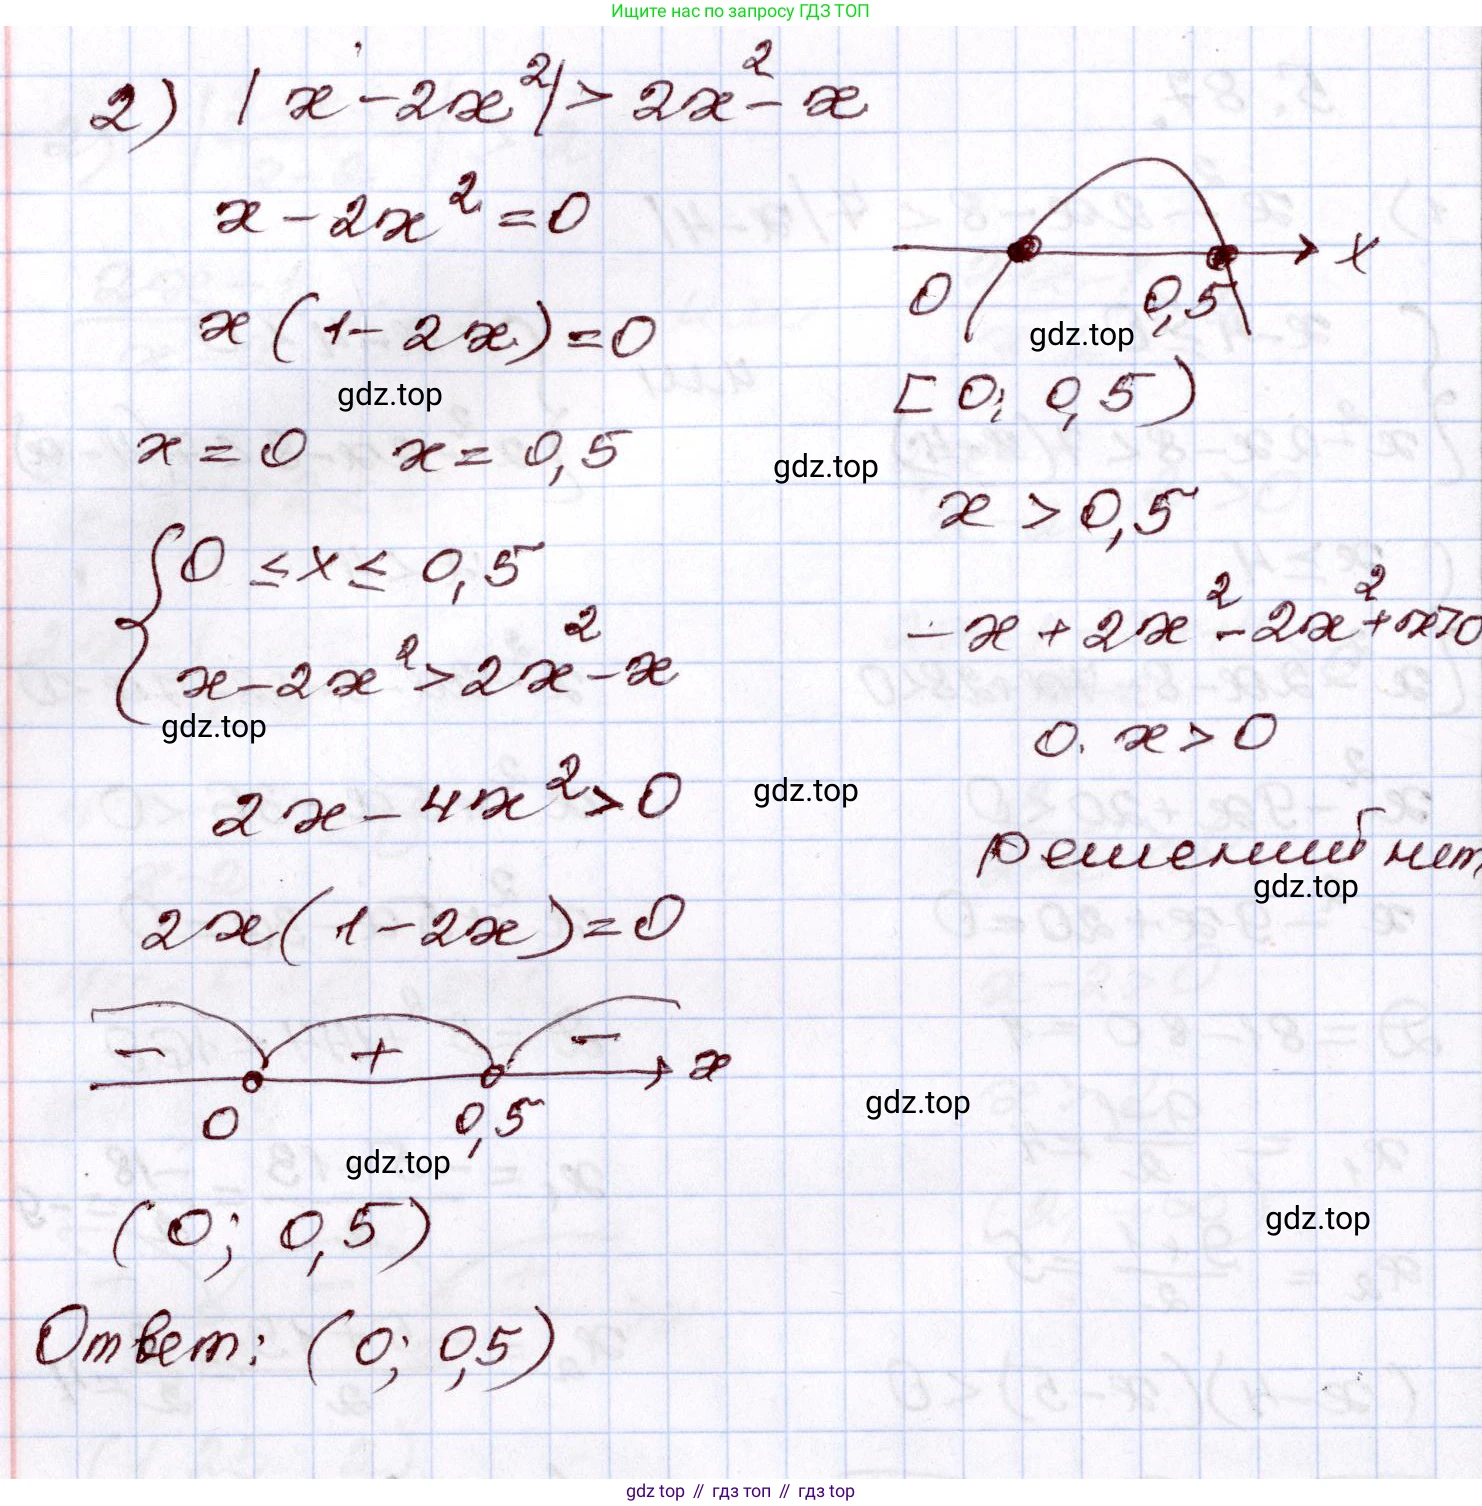 Ищите нас по запросу ГДЗ ТОП
2) |x - 2x²| > 2x² - x
x - 2x² = 0
x (1 - 2x) = 0
gdz.top
x = 0 x = 0,5
{ 0 ≤ x ≤ 0,5
x - 2x² > 2x² - x
gdz.top
2x - 4x² > 0
2x (1 - 2x) = 0
- + - x
0 0,5
gdz.top
(0; 0,5)
Ответ: (0; 0,5)
x
0 0,5
gdz.top
[0; 0,5)
gdz.top
x > 0,5
- x + 2x² - 2x² + x > 0
0. x > 0
gdz.top
решений нет
gdz.top
gdz.top
gdz.top
gdz top // гдз топ // гдз top